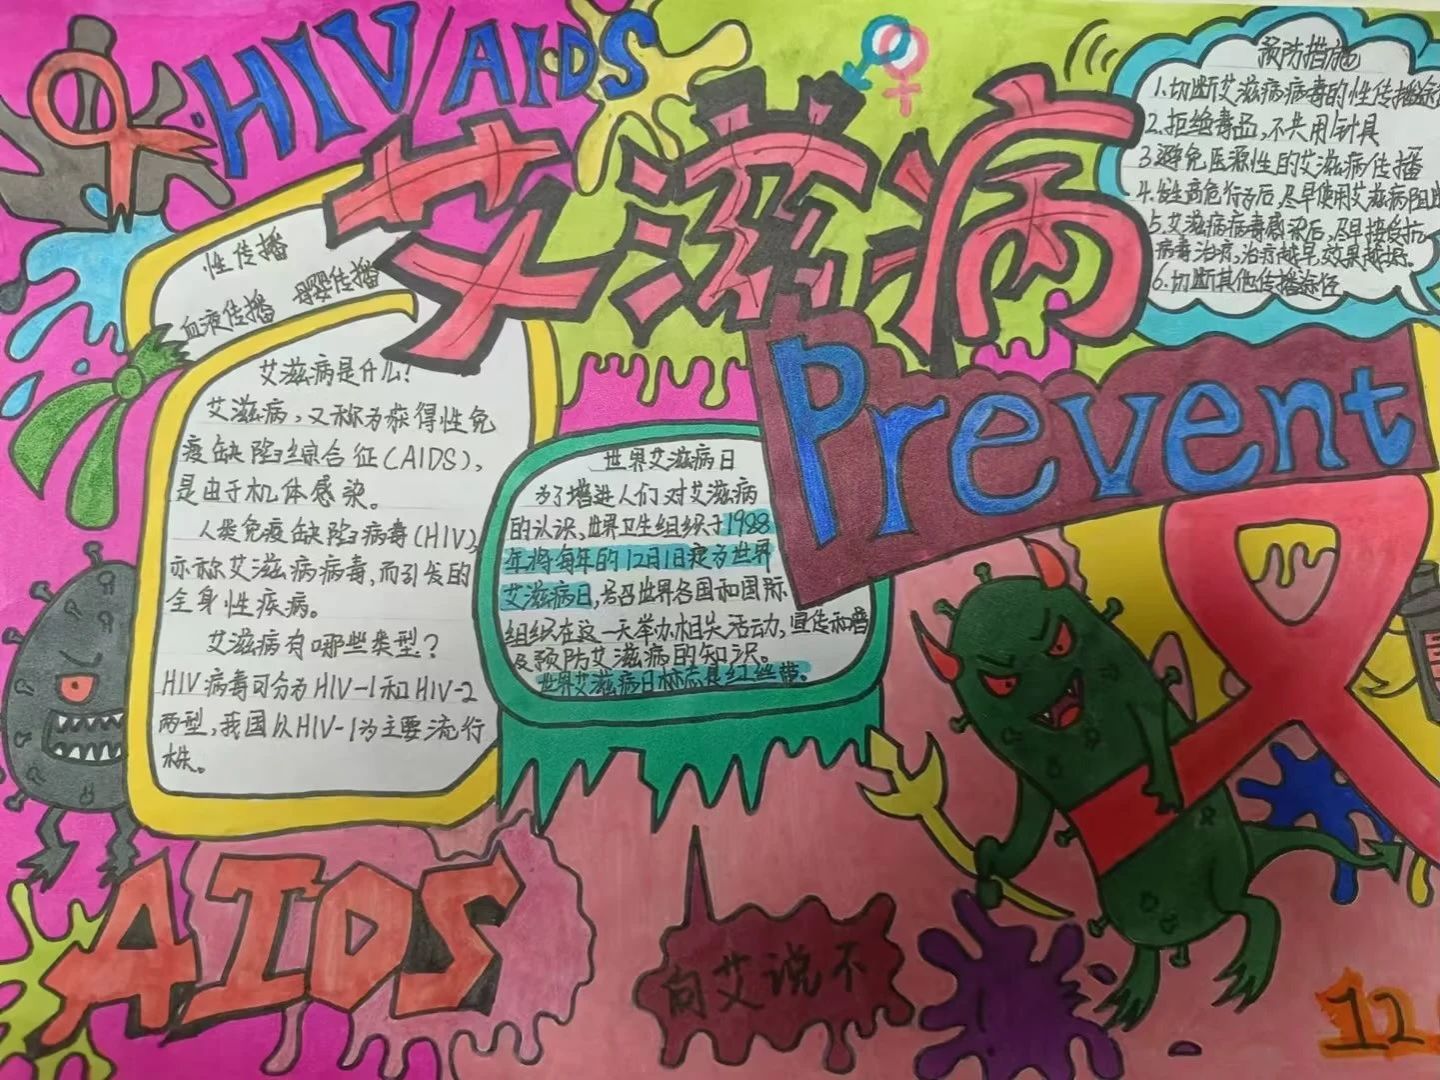 HIV/AIDS
艾滋病
Prevent
性传播
母婴传播
血液传播
艾滋病是什么?
艾滋病,又称为获得性免
疫缺陷综合征(AIDS),
是由于机体感染。
人类免疫缺陷病毒(HIV),
亦称艾滋病病毒,而引发的
全身性疾病。
艾滋病有哪些类型?
HIV病毒可分为HIV-1和HIV-2
两型,我国以HIV-1为主要流行
株。
世界艾滋病日
为了增进人们对艾滋病
的认识,世界卫生组织于1988
年将每年的12月1日定为世界
艾滋病日,号召世界各国和国际
组织在这一天举办相关活动,宣传和普
及预防艾滋病的知识。
世界艾滋病日标志是红丝带。
预防措施
1.切断艾滋病病毒的性传播途
2.拒绝毒品,不共用针具
3.避免医源性的艾滋病传播
4.发生高危行为后,尽早使用艾滋病阻
5.艾滋病病毒感染后,尽早接受抗
病毒治疗,治疗越早,效果越好.
6.切断其他传播途径
AIDS
向艾说不
12